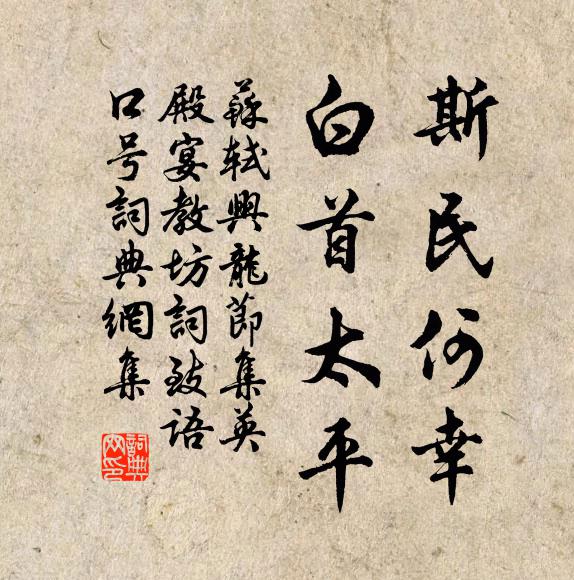 斯民何幸
白首太平
蘇軾興龍節集英
殿宴教坊詞致語
口号詞典網集
詞典
网印